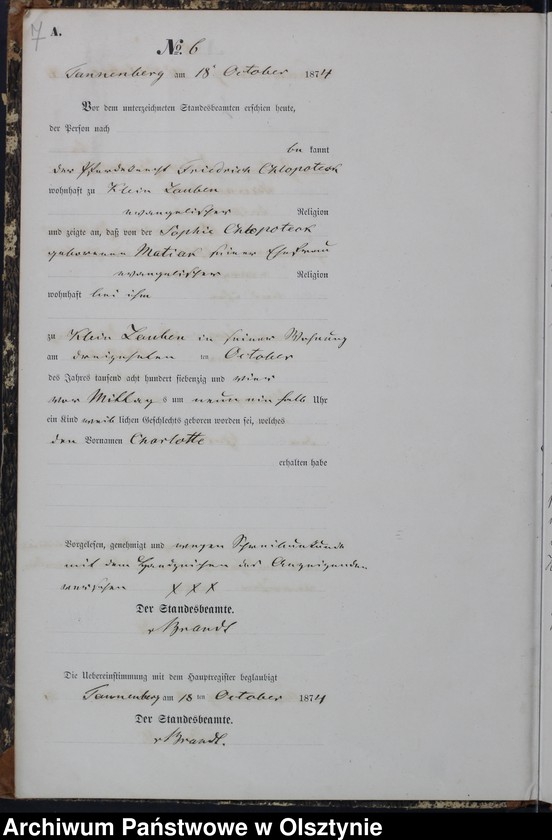 7 A.
№ 6
Tannenberg am 18 October 1874
Vor dem unterzeichneten Standesbeamten erschien heute,
der Person nach
be kannt
der Pferdeknecht Friedrich Chlopoteck
wohnhaft zu Klein Lauben
evangelischer Religion
und zeigte an, daß von der Sophie Chlopoteck
geborenen Matias seiner Ehefrau
evangelischer Religion
wohnhaft bei ihm
zu Klein Lauben in seiner Wohnung
am dreizehnten ten October
des Jahres tausend acht hundert siebenzig und vier
vor Mittag s um neun ein halb Uhr
ein Kind weib lichen Geschlechts geboren worden sei, welches
den Vornamen Charlotte
erhalten habe
Vorgelesen, genehmigt und wegen Schreibunkunde
mit dem Handzeichen des Anzeigenden
versehen X X X
Der Standesbeamte.
v Brandt
Die Uebereinstimmung mit dem Hauptregister beglaubigt
Tannenberg am 18 ten October 1874
Der Standesbeamte.
v Brandt.
Archiwum Państwowe w Olsztynie